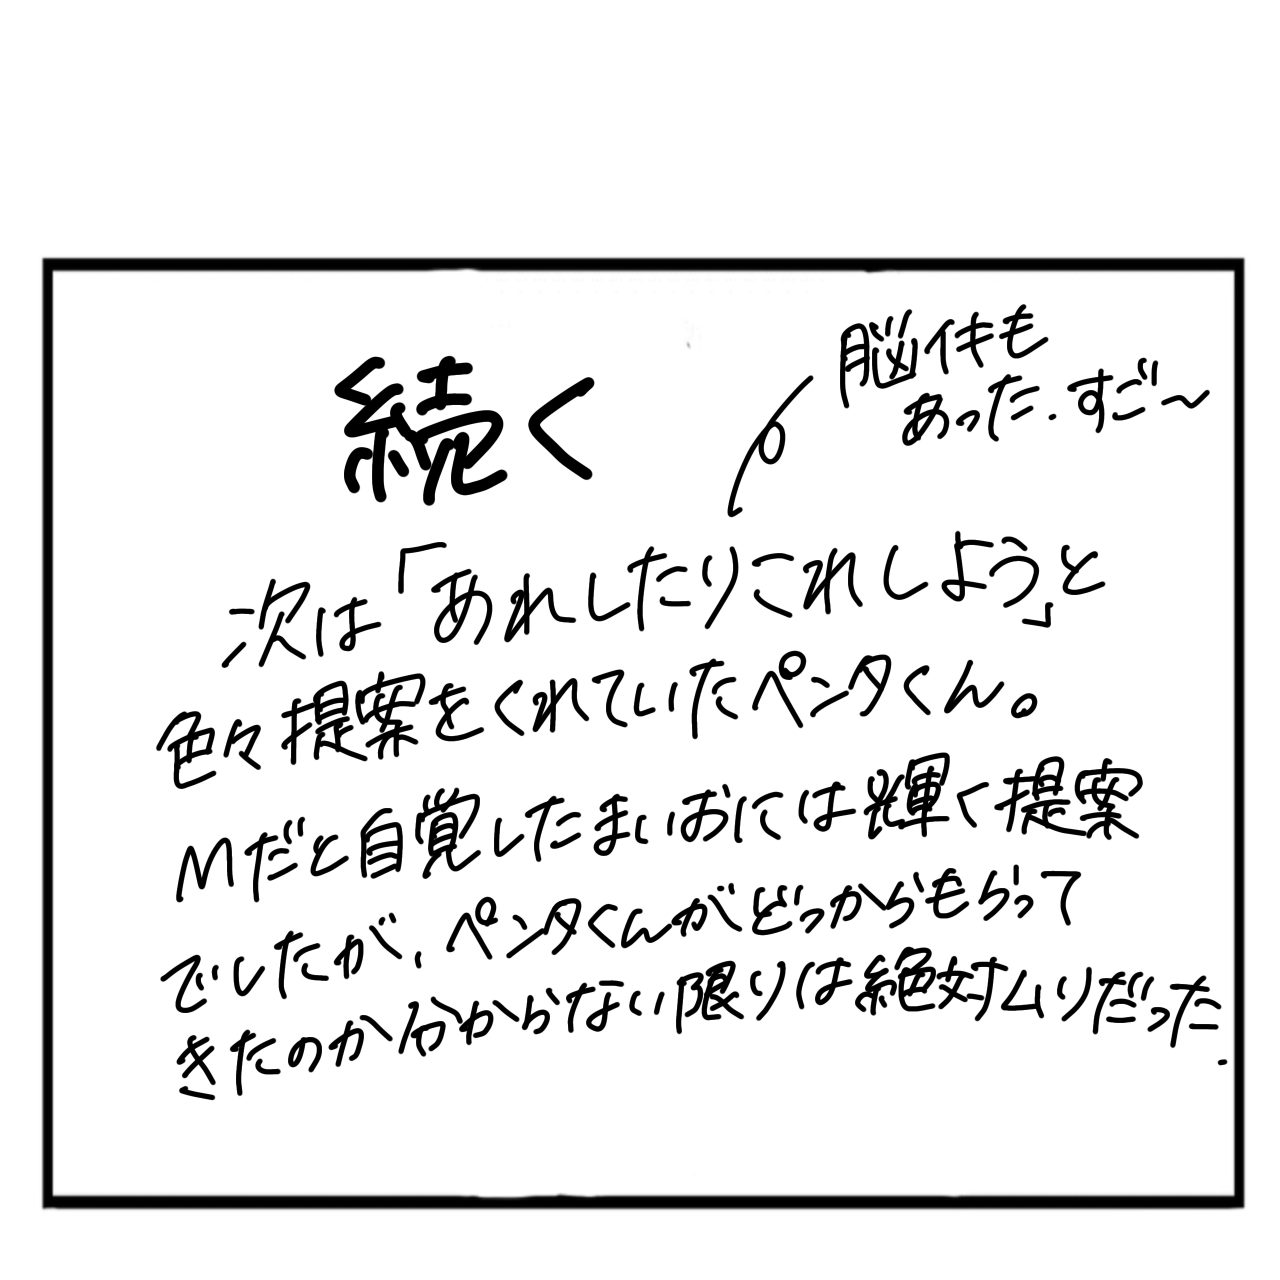 続く
脳イキも
あった.すご〜
次は「あれしたりこれしよう」と
色々提案をくれていたペンタくん。
Mだと自覚したまいおには輝く提案
でしたが、ペンタくんがどっからもらって
きたのか分からない限りは絶対ムリだった.